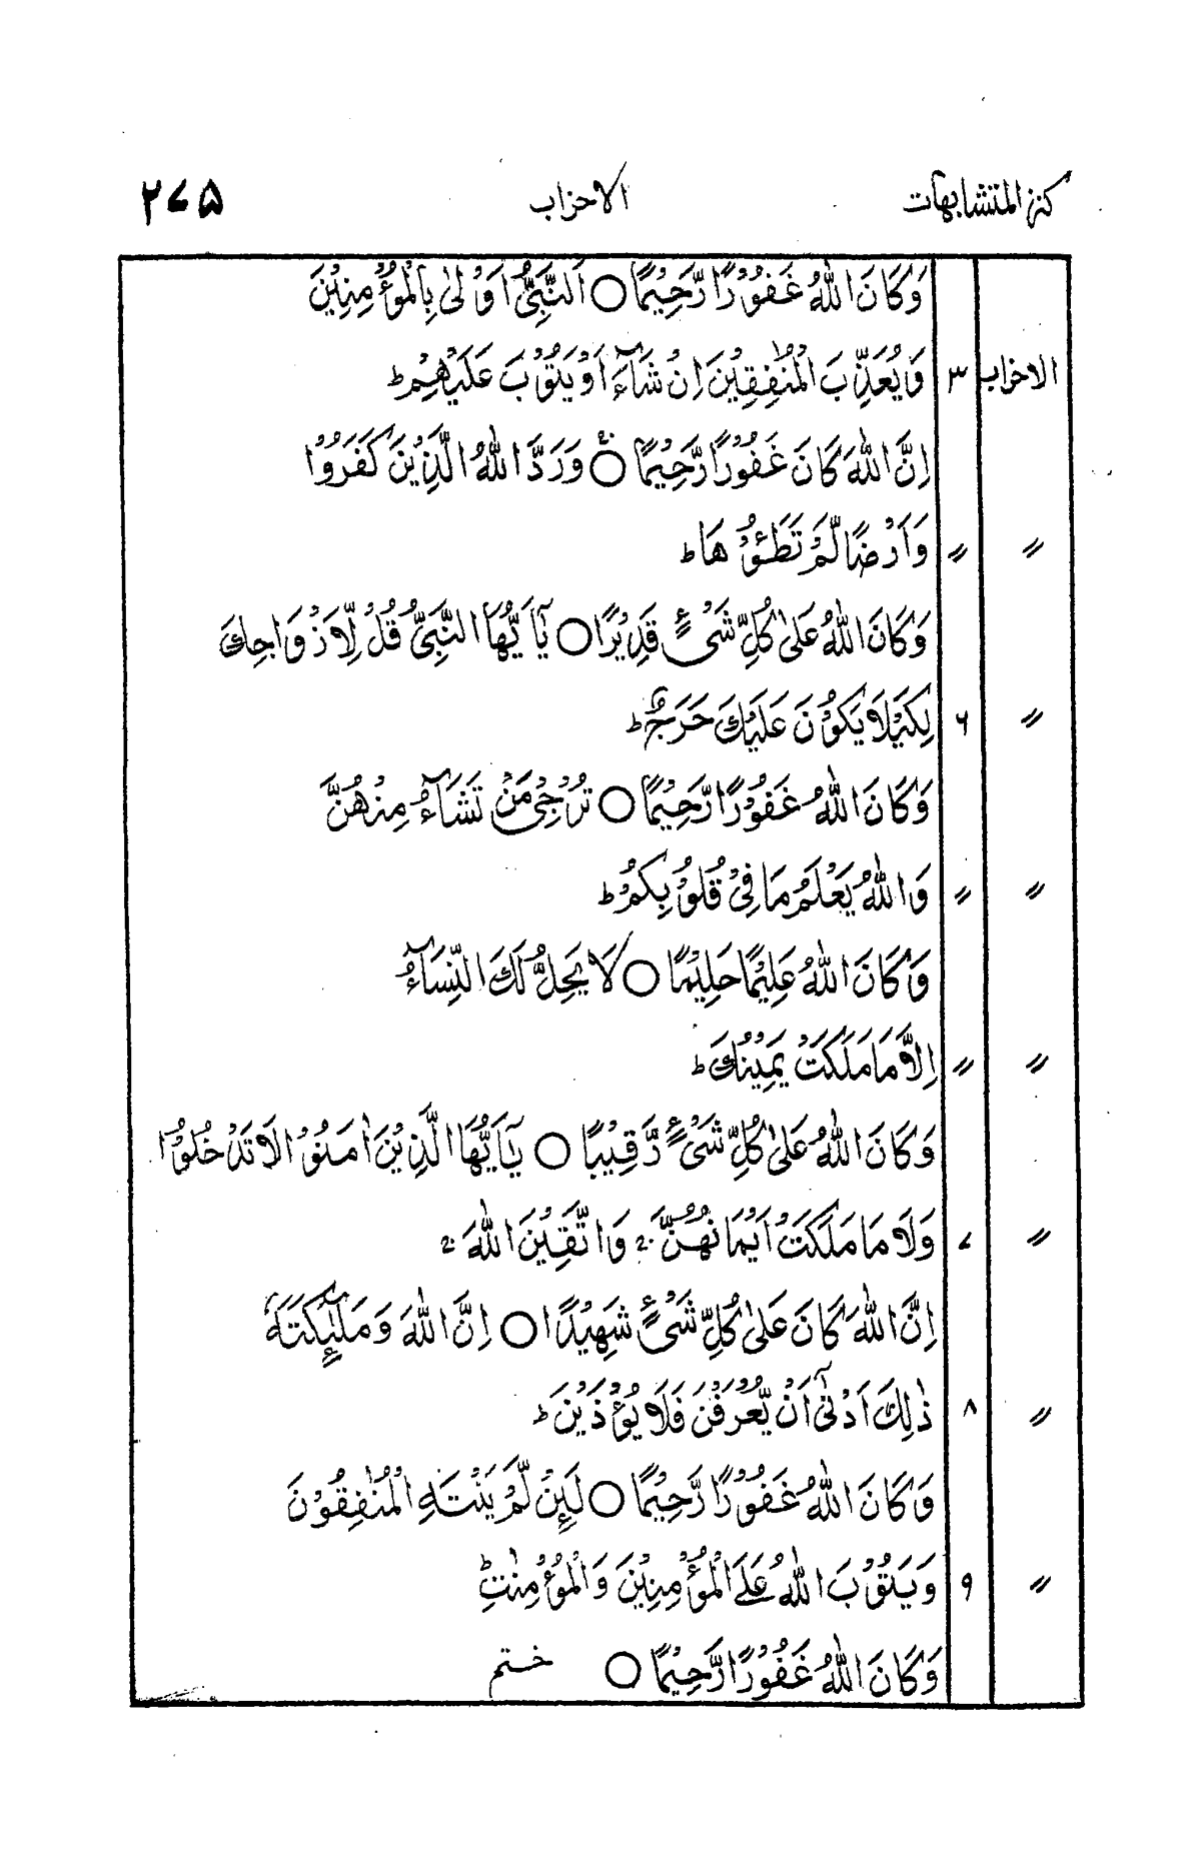 كنز المتشابهات الاحزاب ۲۷۵
وَكَانَ اللّٰهُ غَفُوْرًا رَّحِيْمًا ○ اَلنَّبِىُّ اَوْلٰى بِالْمُؤْمِنِيْنَ
الاحزاب ۳ وَيُعَذِّبَ الْمُنٰفِقِيْنَ اِنْ شَآءَ اَوْ يَتُوْبَ عَلَيْهِمْ ؕ
اِنَّ اللّٰهَ كَانَ غَفُوْرًا رَّحِيْمًا ○ۚ وَرَدَّ اللّٰهُ الَّذِيْنَ كَفَرُوْا
〃 〃 وَاَرْضًا لَّمْ تَطَـُٔوْهَا ؕ
وَكَانَ اللّٰهُ عَلٰى كُلِّ شَىْءٍ قَدِيْرًا ○ يٰۤاَيُّهَا النَّبِىُّ قُلْ لِّاَزْوَاجِكَ
〃 ۶ لِكَيْلَا يَكُوْنَ عَلَيْكَ حَرَجٌ ؕ
وَكَانَ اللّٰهُ غَفُوْرًا رَّحِيْمًا ○ تُرْجِىْ مَنْ تَشَآءُ مِنْهُنَّ
〃 〃 وَاللّٰهُ يَعْلَمُ مَا فِىْ قُلُوْبِكُمْ ؕ
وَكَانَ اللّٰهُ عَلِيْمًا حَلِيْمًا ○ لَا يَحِلُّ لَكَ النِّسَآءُ
〃 〃 اِلَّا مَا مَلَكَتْ يَمِيْنُكَ ؕ
وَكَانَ اللّٰهُ عَلٰى كُلِّ شَىْءٍ رَّقِيْبًا ○ يٰۤاَيُّهَا الَّذِيْنَ اٰمَنُوْا لَا تَدْخُلُوْا
〃 ۷ وَلَا مَا مَلَكَتْ اَيْمَانُهُنَّ ۚ وَاتَّقِيْنَ اللّٰهَ ۚ
اِنَّ اللّٰهَ كَانَ عَلٰى كُلِّ شَىْءٍ شَهِيْدًا ○ اِنَّ اللّٰهَ وَمَلٰٓئِكَتَهٗ
〃 ۸ ذٰلِكَ اَدْنٰۤى اَنْ يُّعْرَفْنَ فَلَا يُؤْذَيْنَ ؕ
وَكَانَ اللّٰهُ غَفُوْرًا رَّحِيْمًا ○ لَئِنْ لَّمْ يَنْتَهِ الْمُنٰفِقُوْنَ
〃 ۹ وَيَتُوْبَ اللّٰهُ عَلَى الْمُؤْمِنِيْنَ وَالْمُؤْمِنٰتِ ؕ
وَكَانَ اللّٰهُ غَفُوْرًا رَّحِيْمًا ○ ختم